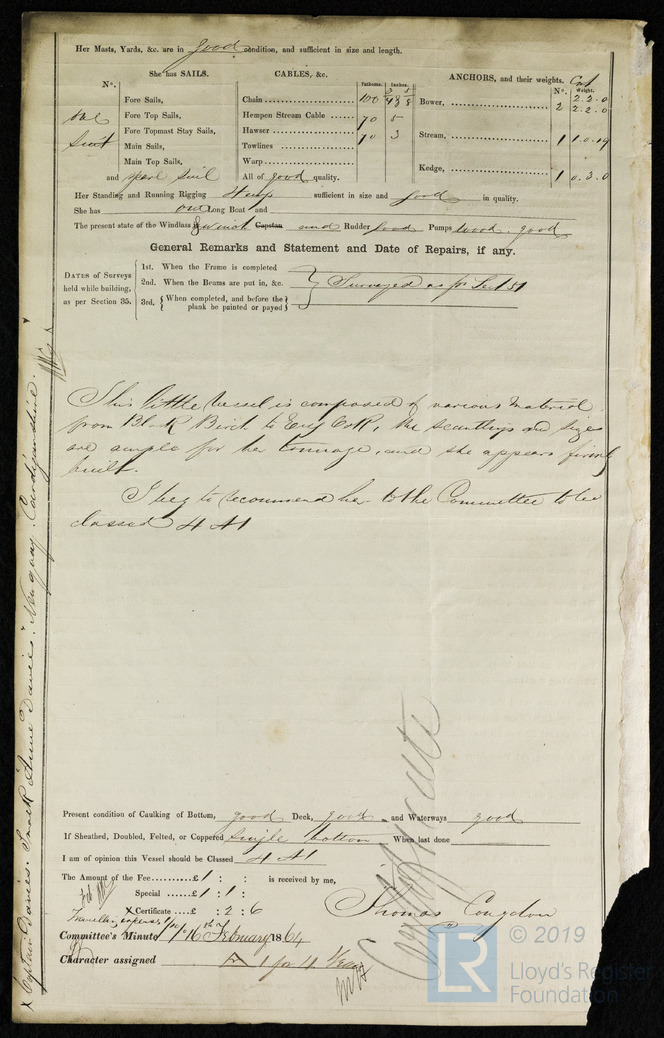 Her Masts, Yards, &c. are in good condition, and sufficient in size and length.
She has SAILS.
CABLES, &c.
ANCHORS, and their weights. Cwt
N°.
Fathoms.
Inches.
N°.
Weight.
Fore Sails,
Fore Top Sails,
Fore Topmast Stay Sails,
Main Sails,
Main Top Sails,
one
Suit
and spare sail
Chain 100
Hempen Stream Cable 70 5
Hawser 70 3
Towlines
Warp
All of good quality.
Bower, 2 2.2.0
2.2.0
Stream, 1 1.0.19
Kedge, 1 0.3.0
Her Standing and Running Rigging Hemp sufficient in size and good in quality.
She has one Long Boat and
The present state of the Windlass & winch Capstan and Rudder good Pumps wood. good
General Remarks and Statement and Date of Repairs, if any.
DATES of Surveys held while building, as per Section 35.
1st. When the Frame is completed
2nd. When the Beams are put in, &c.
3rd. When completed, and before the plank be painted or payed
Surveyed as pr Sect 51
This little Vessel is composed of various Material
from Black Birch to Eng Oak, the scantlings and sizes
are ample for her tonnage, and she appears firmly
built.
I beg to recommend her to the Committee to be
classed 4 A1
Certificate
Present condition of Caulking of Bottom, good Deck, good and Waterways good
If Sheathed, Doubled, Felted, or Coppered single bottom When last done
I am of opinion this Vessel should be Classed 4 A1
The Amount of the Fee £1 : : is received by me,
Special £1 : 1 :
X Certificate £ : 2 : 6
Travelling expenses
Thomas Congdon
Committee's Minute 16th February 1864
Character assigned A 1 for 4 Years
X Captain Davies. Smack Anne Davies. New quay. Cardiganshire.
LR
© 2019
Lloyd's Register
Foundation